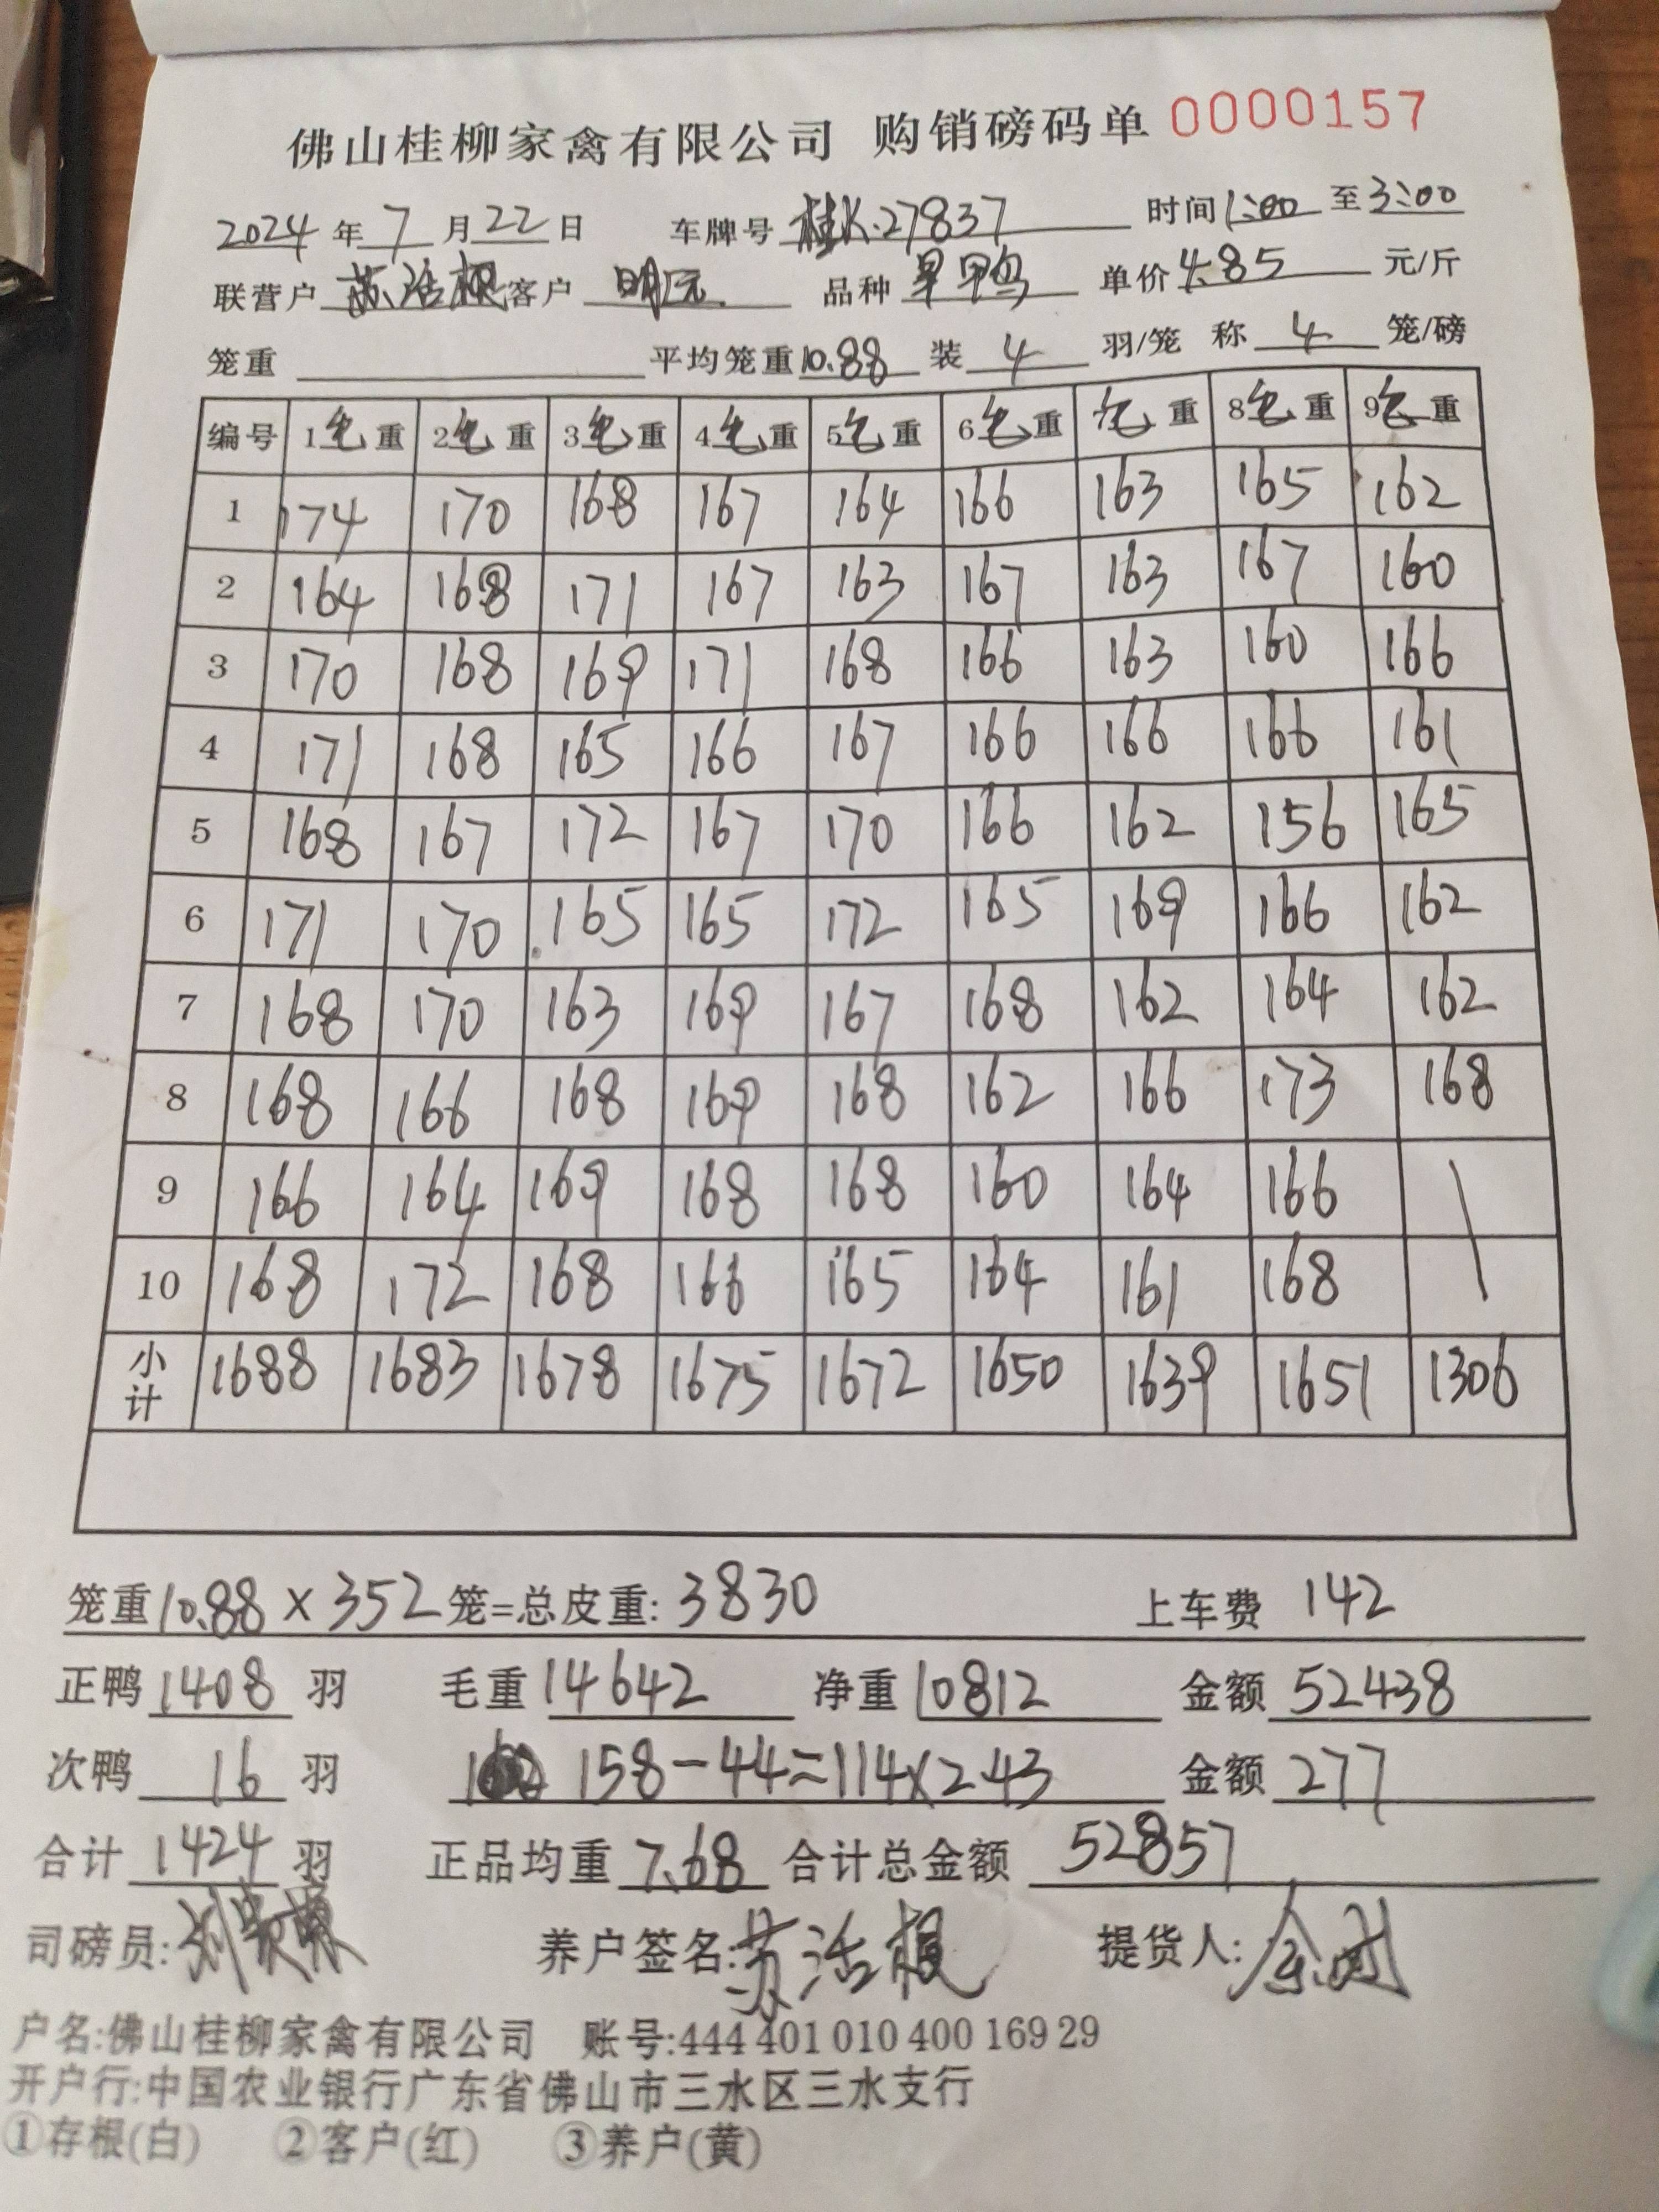 佛山桂柳家禽有限公司 购销磅码单 0000157
2024 年 7 月 22 日 车牌号 桂K·27837 时间 1:00 至 3:00
联营户 苏活根 客户 明远 品种 旱甲鸭 单价 4.85 元/斤
笼重 平均笼重 10.88 装 4 羽/笼 称 4 笼/磅
编号 1毛重 2毛重 3毛重 4毛重 5毛重 6毛重 7毛重 8毛重 9毛重
1 174 170 168 167 164 166 163 165 162
2 164 168 171 167 163 167 163 167 160
3 170 168 169 171 168 166 163 160 166
4 171 168 165 166 167 166 166 166 161
5 168 167 172 167 170 166 162 156 165
6 171 170 165 165 172 165 169 166 162
7 168 170 163 169 167 168 162 164 162
8 168 166 168 169 168 162 166 173 168
9 166 164 169 168 168 160 164 166
10 168 172 168 166 165 164 161 168
小计 1688 1683 1678 1675 1672 1650 1639 1651 1306
笼重 10.88 × 352 笼=总皮重: 3830 上车费 142
正鸭 1408 羽 毛重 14642 净重 10812 金额 52438
次鸭 16 羽 158-44=114×2.43 金额 277
合计 1424 羽 正品均重 7.68 合计总金额 52857
司磅员: 养户签名: 苏活根 提货人:
户名:佛山桂柳家禽有限公司 账号:444 401 010 400 169 29
开户行:中国农业银行广东省佛山市三水区三水支行
①存根(白) ②客户(红) ③养户(黄)